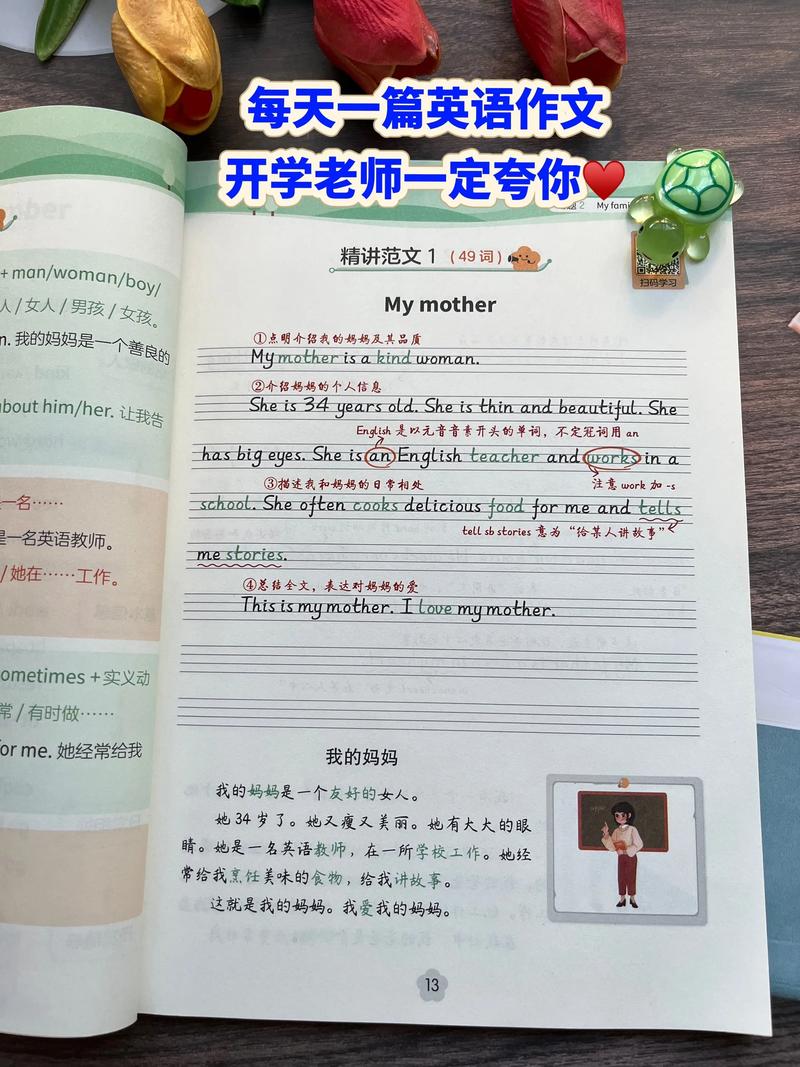 每天一篇英语作文
开学老师一定夸你❤️
2 My fami
扫码学习
精讲范文1（49词）
My mother
①点明介绍我的妈妈及其品质
My mother is a kind woman.
②介绍妈妈的个人信息
She is 34 years old. She is thin and beautiful. She
English 是以元音音素开头的单词，不定冠词用 an
has big eyes. She is an English teacher and works in a
③描述我和妈妈的日常相处
注意 work 加 -s
school. She often cooks delicious food for me and tells
tell sb stories 意为“给某人讲故事”
me stories.
④总结全文，表达对妈妈的爱
This is my mother. I love my mother.
我的妈妈
我的妈妈是一个友好的女人。
她34岁了。她又瘦又美丽。她有大大的眼
睛。她是一名英语教师，在一所学校工作。她经
常给我烹饪美味的食物，给我讲故事。
这就是我的妈妈。我爱我的妈妈。
13
+ man/woman/boy/
人/女人/男孩/女孩。
n. 我的妈妈是一个善良的
about him/her. 让我告
一名……
是一名英语教师。
/她在……工作。
ometimes + 实义动
常/有时做……
for me. 她经常给我